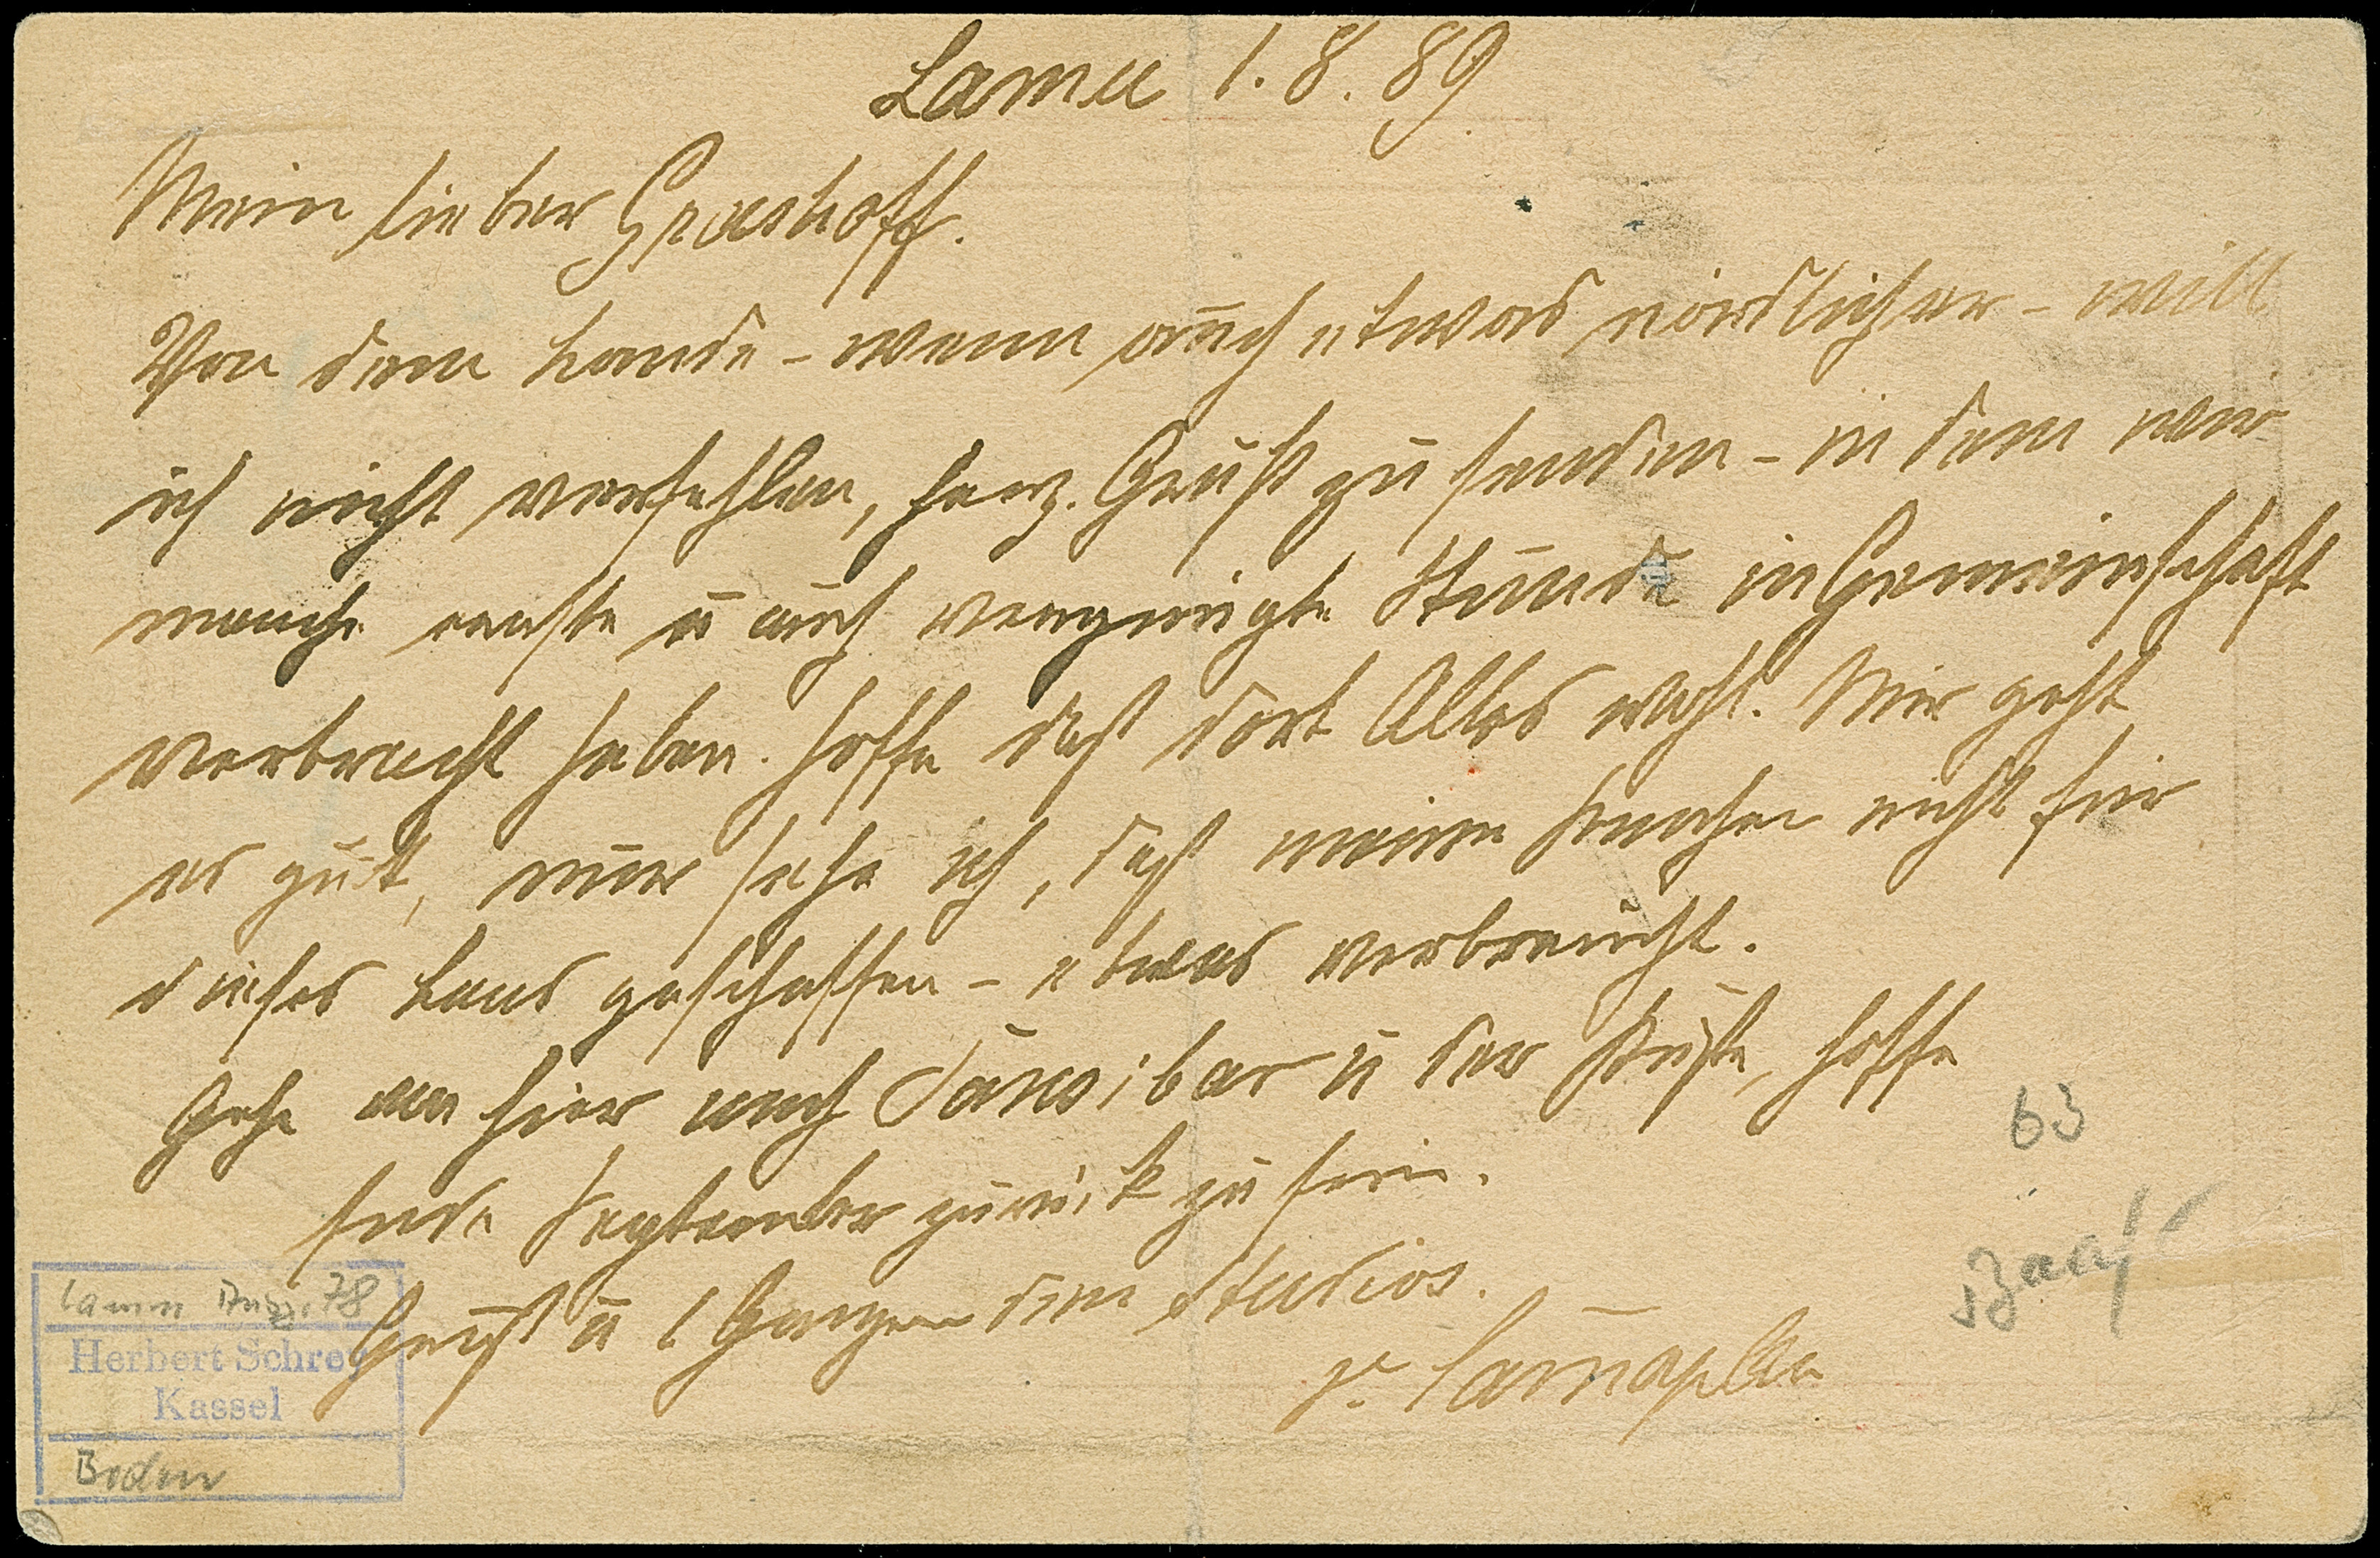 Lamu 1.8.89
Mein lieber Grashoff.
Von dem Lande - wenn auch etwas nördlicher - will
ich nicht verfehlen, herz. Gruß zu senden - in dem wir
manche ernste u auch vergnügte Stunde in Gemeinschaft
verbracht haben. Hoffe daß dort Alles wohl. Mir geht
es gut, nur sehe ich, daß meine Knochen nicht für
dieses Land geschaffen - etwas verbraucht.
Gehe von hier nach Sansibar u der Küste, hoffe
Ende September zurück zu sein.
Gruß u den Studios.
63
Lamu 78
Herbert Schrey
Kassel